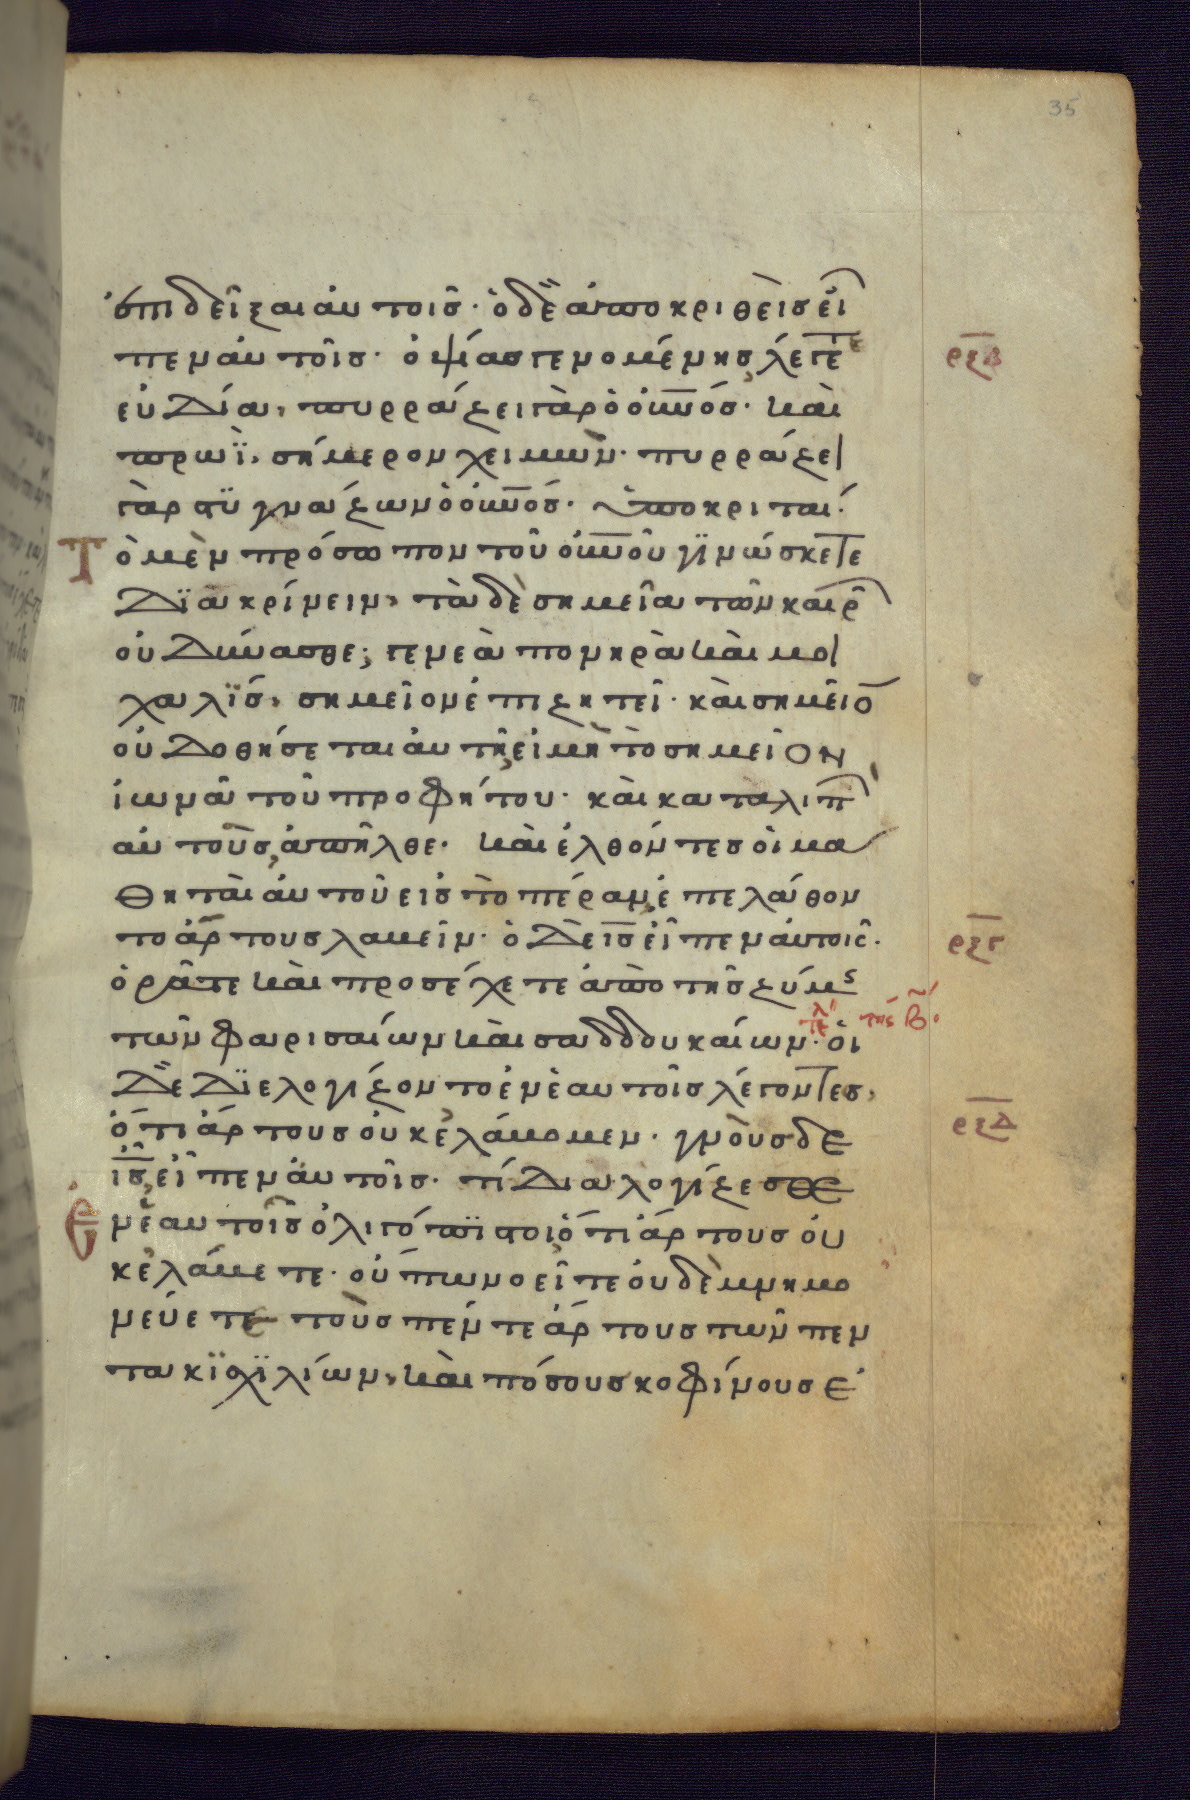 35
ἐπιδεῖξαι αὐτοῖς· ὁ δὲ ἀποκριθεὶς εἶ
πεν αὐτοῖς· ὀψίας γενομένης λέγετε
ρξβ
εὐδία, πυρράζει γὰρ ὁ οὐνός· καὶ
πρωῒ, σήμερον χειμών· πυρράζει
γὰρ στυγνάζων ὁ οὐνός· ὑποκριταί·
Τὸ μὲν πρόσωπον τοῦ οὐνοῦ γινώσκετε
διακρίνειν, τὰ δὲ σημεῖα τῶν καιρ
οὐ δύνασθε; γενεὰ πονηρὰ καὶ μοι
χαλῒς, σημεῖον ἐπιζητεῖ· καὶ σημεῖο
οὐ δοθήσεται αὐτῇ εἰ μὴ τὸ σημεῖον
ἰωνᾶ τοῦ προφήτου· καὶ καταλιπ
αὐτοὺς, ἀπῆλθε· καὶ ἐλθόντες οἱ μα
θηταὶ αὐτοῦ εἰς τὸ πέραν, ἐπελάθον
το ἄρτους λαβεῖν· ὁ δὲ ις εἶπεν αὐτοῖς·
ρξγ
ὁρᾶτε καὶ προσέχετε ἀπὸ τῆς ζύμς
τῶν φαρισαίων καὶ σαδδουκαίων· οἱ
τῆς β
δὲ διελογίζοντο ἐν ἑαυτοῖς λέγοντες,
ὅτι ἄρτους οὐκ ἐλάβομεν· γνοὺς δὲ
ρξδ
ις, εἶπεν αὐτοῖς· τί διαλογίζεσθε
ἐν ἑαυτοῖς ὀλιγόπιστοι, ὅτι ἄρτους οὐ
κ ἐλάβετε· οὔπω νοεῖτε, οὐδὲ μνημο
νεύετε τοὺς πέντε ἄρτους τῶν πεν
τακισχιλίων, καὶ πόσους κοφίνους ἐ